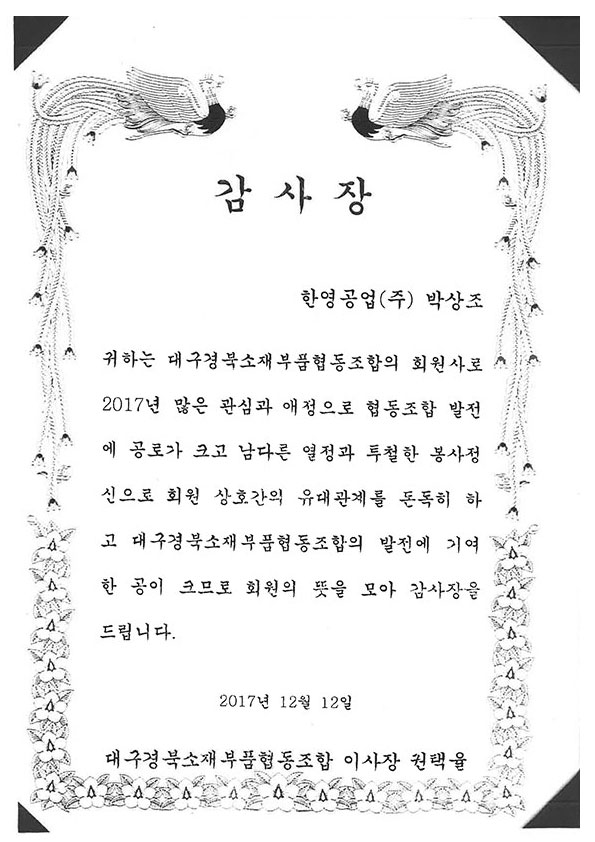 감사장
한영공업(주) 박상조
귀하는 대구경북소재부품협동조합의 회원사로
2017년 많은 관심과 애정으로 협동조합 발전
에 공로가 크고 남다른 열정과 투철한 봉사정
신으로 회원 상호간의 유대관계를 돈독히 하
고 대구경북소재부품협동조합의 발전에 기여
한 공이 크므로 회원의 뜻을 모아 감사장을
드립니다.
2017년 12월 12일
대구경북소재부품협동조합 이사장 원택율